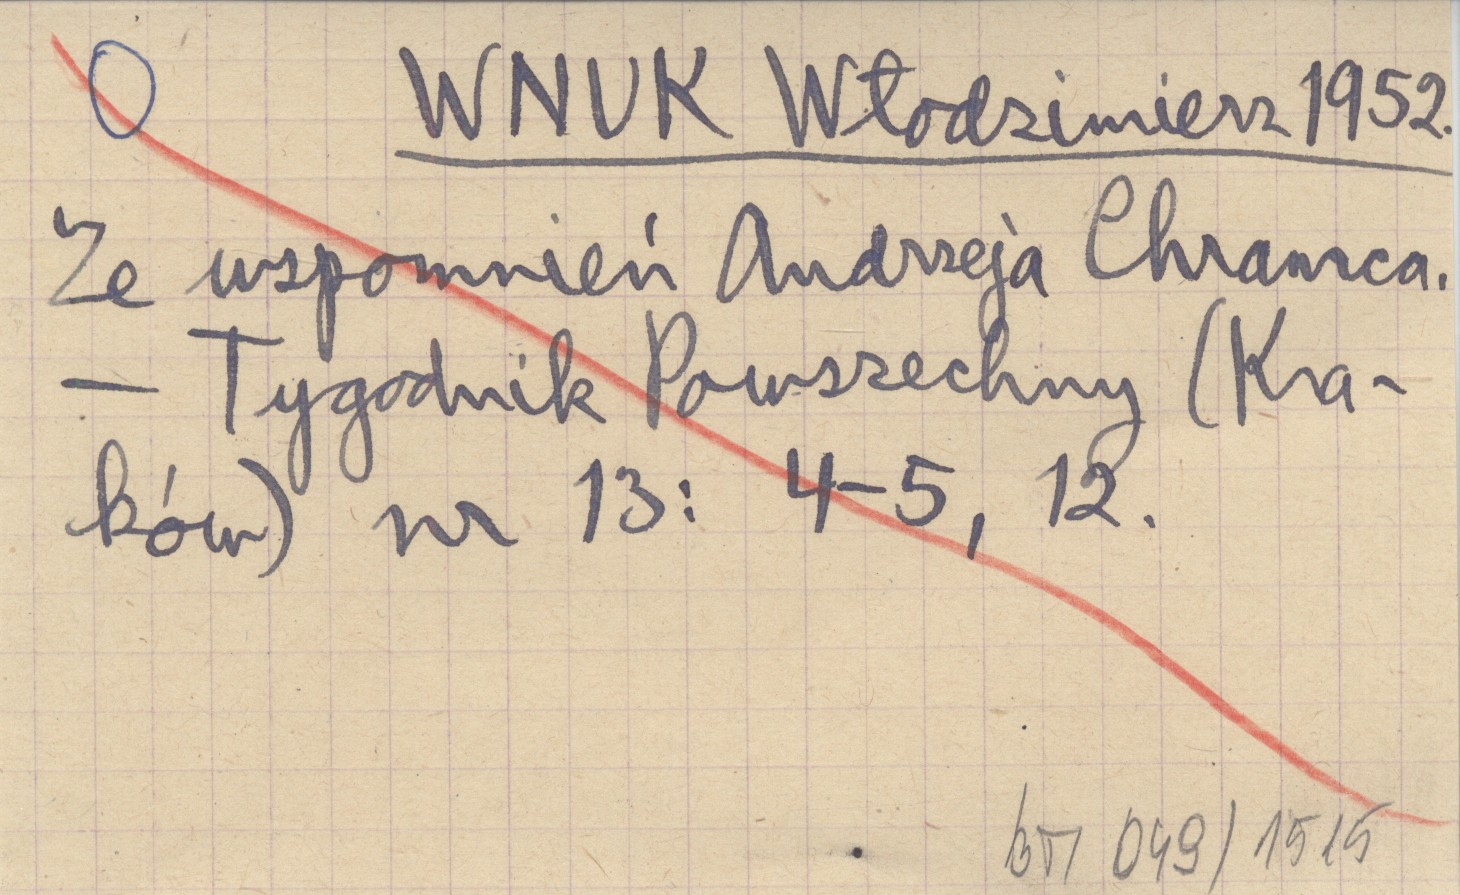 O WNUK Włodzimierz 1952.
Ze wspomnień Andrzeja Chramca.
— Tygodnik Powszechny (Kra-
ków) nr 13: 4-5, 12.
049/1515